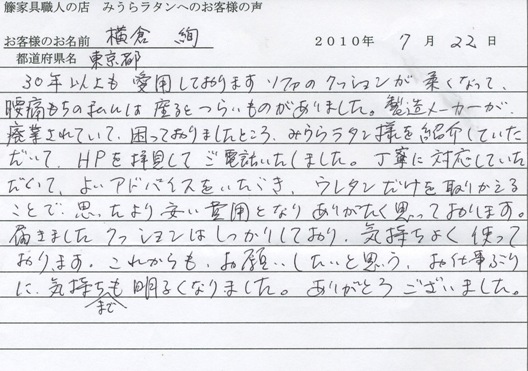 籐家具職人の店 みうらラタンへのお客様の声
お客様のお名前 横倉 絢 2010年 7月 22日
都道府県名 東京都
30年以上も 愛用しております ソファのクッションが 柔くなって、
腰痛もちの私には 座るとつらいものがありました。製造メーカーが、
廃業されていて、困っておりましたところ、みうらラタン様を紹介していた
だいて、HPを拝見して ご電話いたしました。丁寧に対応していた
だいて、よいアドバイスをいただき、ウレタンだけを取りかえる
ことで 思ったより 安い費用となり ありがたく思っております。
届きました クッションは しっかりしており、気持ちよく 使って
おります。これからも、お願いしたいと思う、お仕事ぶり
に、気持ちまでも 明るくなりました。ありがとうございました。